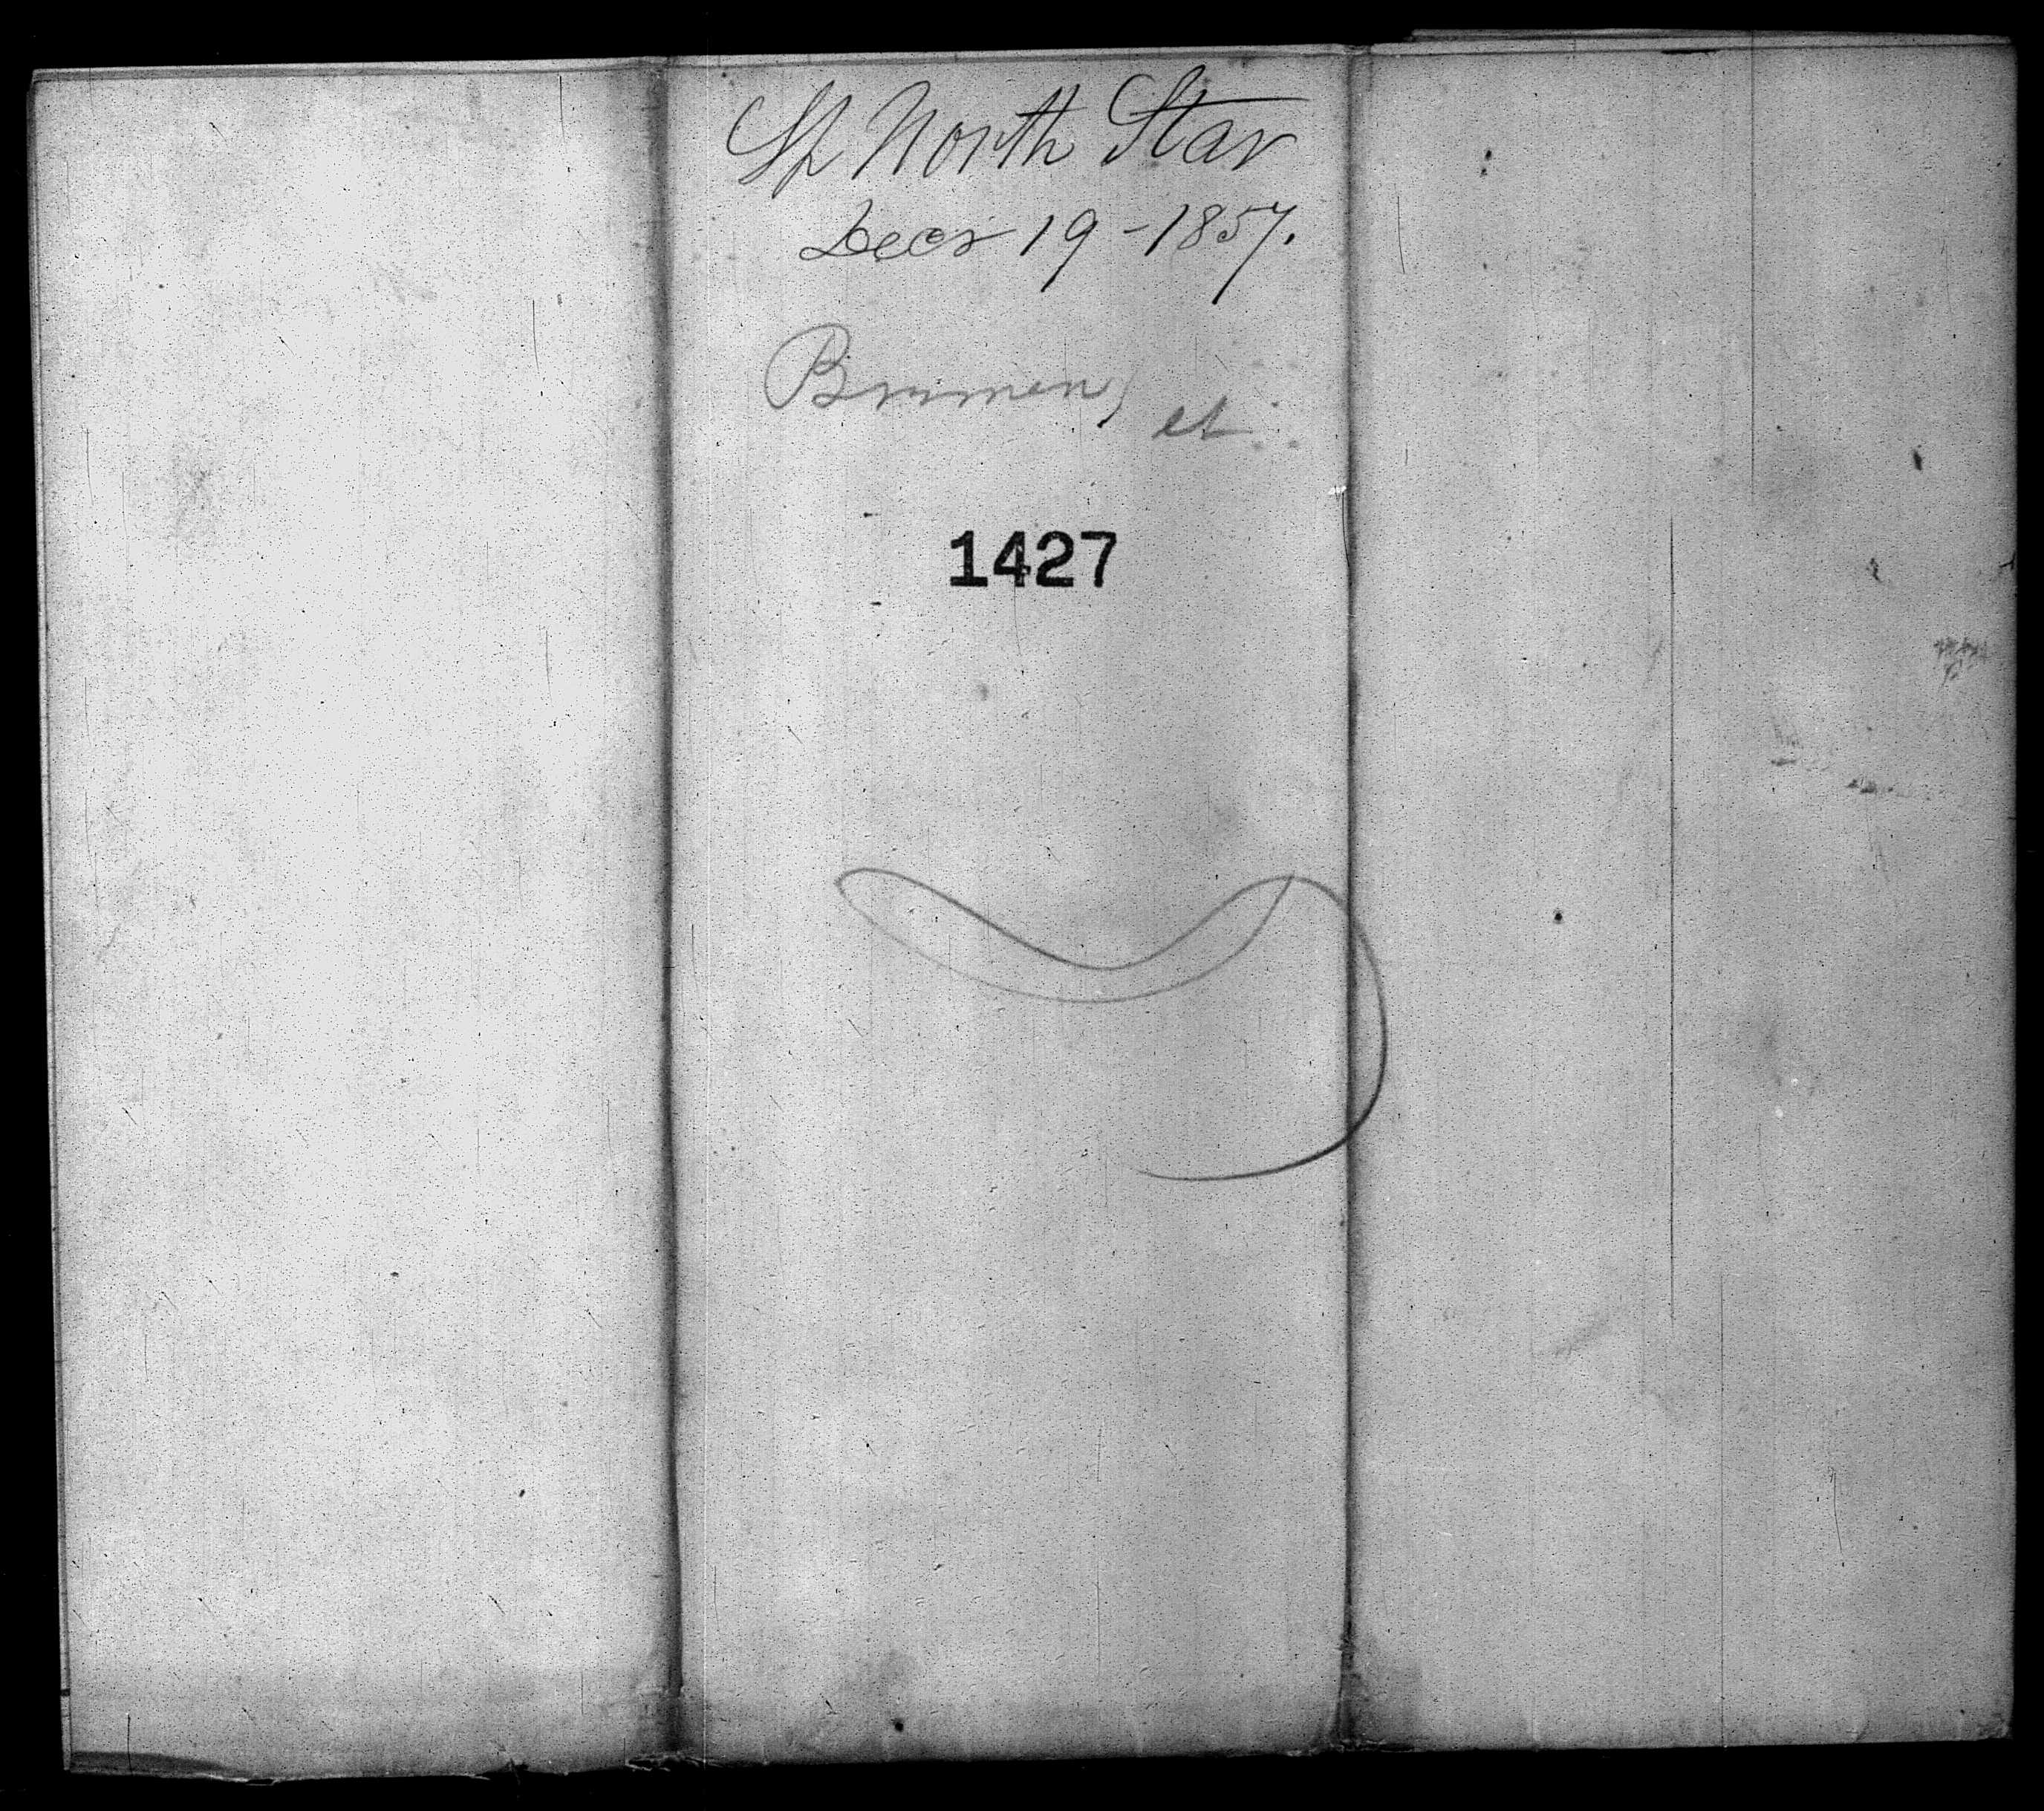 Sp North Star
Decr 19 - 1857.
Bremen,
et
1427